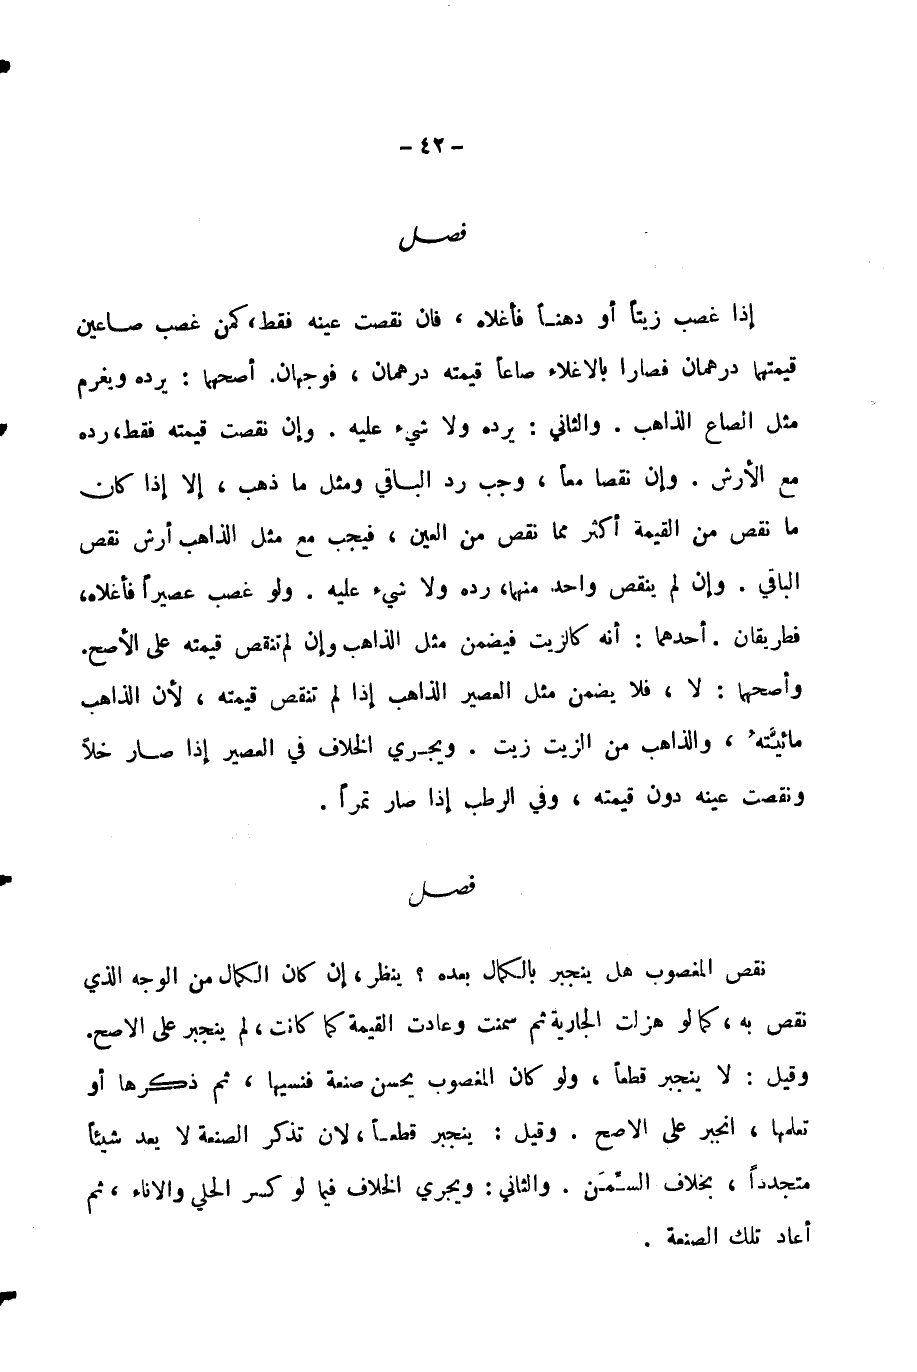 - ٤٢ -
فصل
إذا غصب زيتاً أو دهناً فأغلاه ، فان نقصت عينه فقط، كمن غصب صاعين
قيمتها درهمان فصارا بالاغلاء صاعاً قيمته درهمان ، فوجهان. أصحها : يرده ويغرم
مثل الصاع الذاهب . والثاني : يرده ولا شيء عليه . وإن نقصت قيمته فقط، رده
مع الأرش . وإن نقصا معاً ، وجب رد الباقي ومثل ما ذهب ، إلا إذا كان
ما نقص من القيمة أكثر مما نقص من العين ، فيجب مع مثل الذاهب أرش نقص
الباقي . وإن لم ينقص واحد منها، رده ولا شيء عليه . ولو غصب عصيراً فأغلاه،
فطريقان . أحدهما : أنه كالزيت فيضمن مثل الذاهب وإن لم تنقص قيمته على الأصح.
وأصحها : لا ، فلا يضمن مثل العصير الذاهب إذا لم تنقص قيمته ، لأن الذاهب
مائيَّته ، والذاهب من الزيت زيت . ويجري الخلاف في العصير إذا صار خلاً
ونقصت عينه دون قيمته ، وفي الرطب إذا صار تمراً .
فصل
نقص المغصوب هل ينجبر بالكمال بعده ؟ ينظر ، إن كان الكمال من الوجه الذي
نقص به ، كما لو هزلت الجارية ثم سمنت وعادت القيمة كما كانت ، لم ينجبر على الاصح.
وقيل : لا ينجبر قطعاً ، ولو كان المغصوب يحسن صنعة فنسيها ، ثم ذكرها أو
تعلمها ، انجبر على الاصح . وقيل : ينجبر قطعاً ، لان تذكر الصنعة لا يعد شيئاً
متجدداً ، بخلاف السِّمَن . والثاني : ويجري الخلاف فيما لو كسر الحلي والاناء ، ثم
أعاد تلك الصنعة .